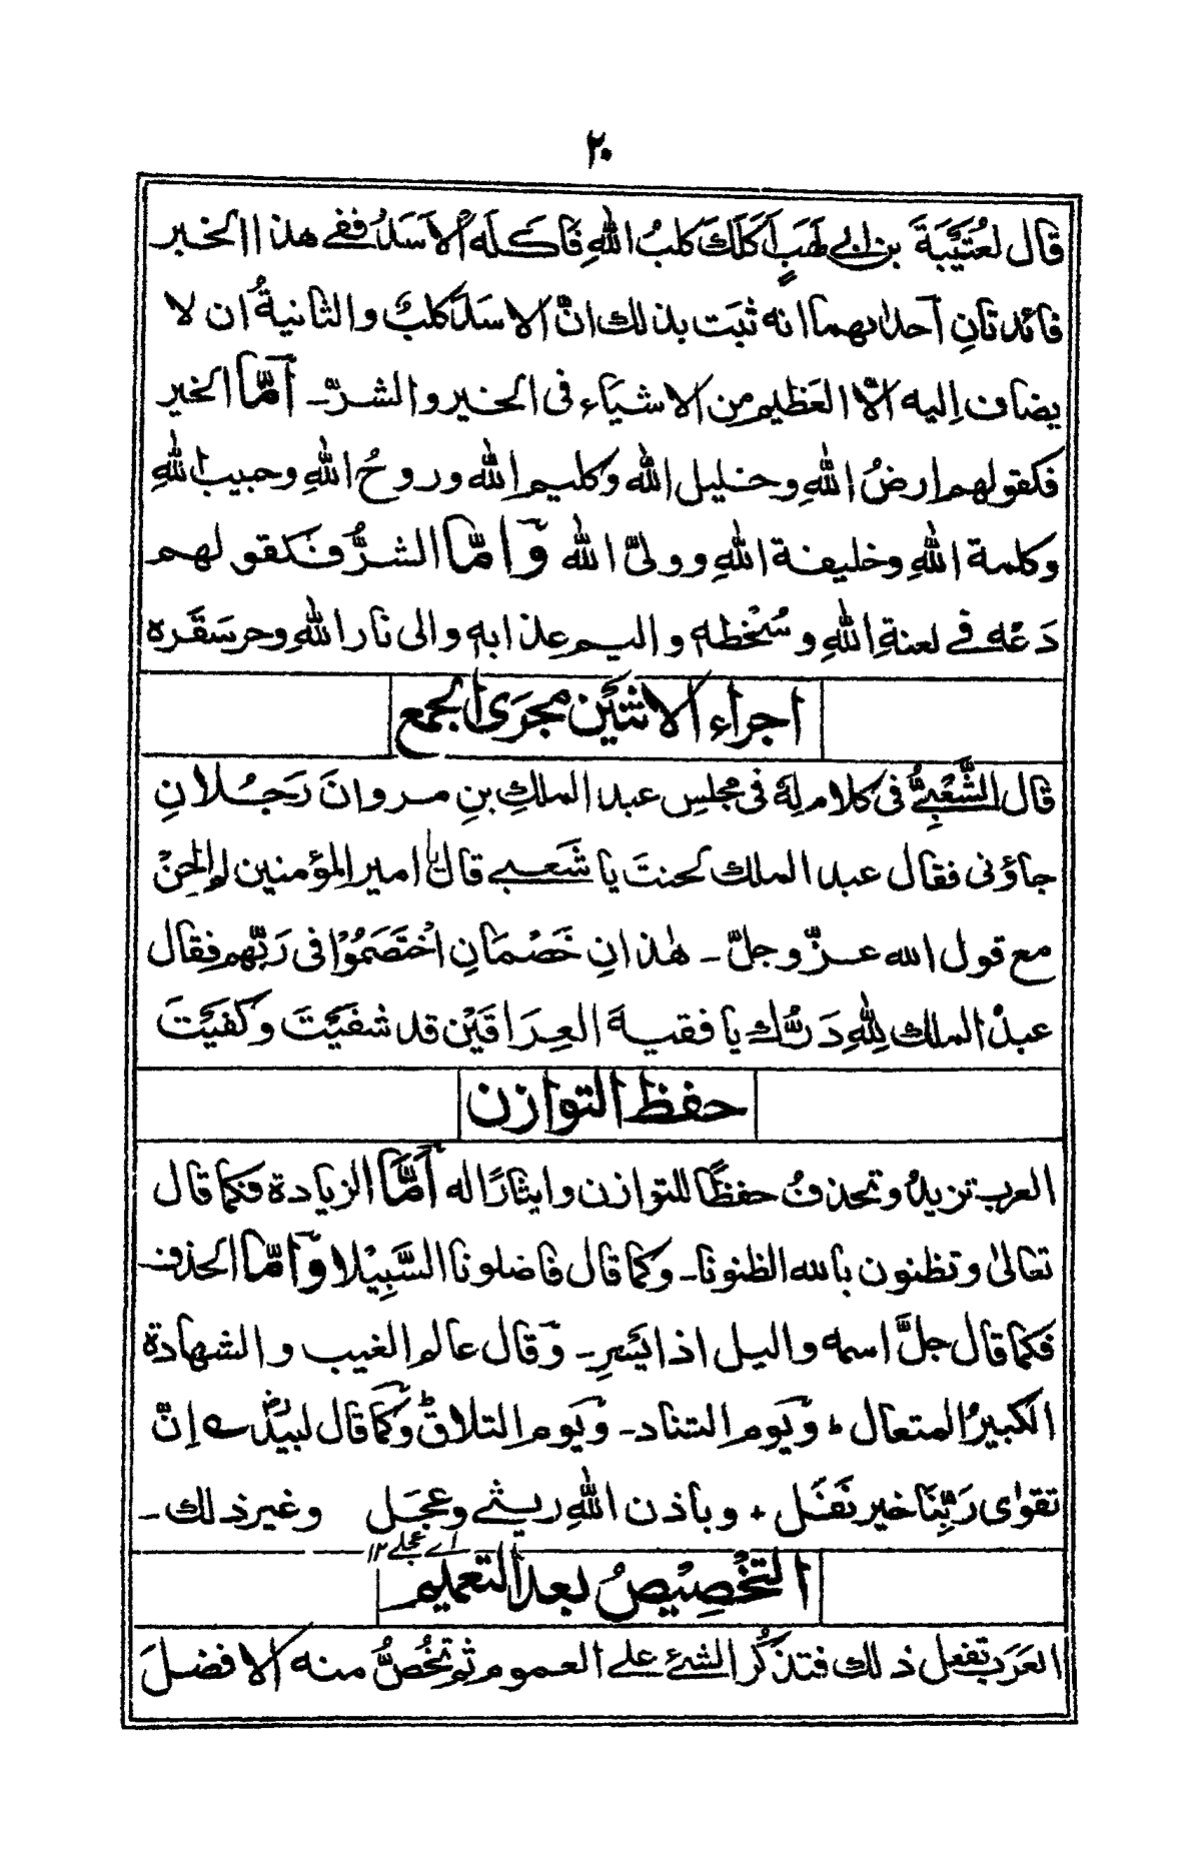 ٢٠
قال لعُتَيْبَةَ بن ابي لَهَبٍ اَكَلَكَ كلبُ اللّٰهِ فَاَكَلَه الْاَسَدُ ففے هذا الخبر
فائدتانِ اَحدٰىهما انه ثبَت بذلك انَّ الاسدَ كلبٌ والثانيةُ ان لا
يضاف اِليه الّا العَظيم من الاشيَاء فى الخير والشرّ۔ اَمَّا الخير
فكقولهم ارضُ اللّٰهِ وخليل اللّٰه وكليم اللّٰه وروحُ اللّٰهِ وحبيب اللّٰهِ
وكلمة اللّٰهِ وخليفة اللّٰهِ ووليّ اللّٰه وَامَّا الشرُّ فنكقولهم
دَعْه فے لعنةِ اللّٰهِ وسُخْطه واليم عذابه والى نار اللّٰهِ وحر سَقَره
اجراء الاثنَين مجرَى الجمع
قال الشَّعْبِيُّ فى كلام لهٗ فى مجلس عبد الملكِ بنِ مروانَ رَجُلانِ
جاؤنى فقال عبد الملك لحنتَ يا شَعبے قال يا امير المؤمنين لم الحنْ
مع قول الله عزّ وجلّ ۔ هٰذانِ خَصْمَانِ اخْتَصَمُوْا فى رَبِّهم فقال
عبدُ الملك لِلّٰهِ دَرُّك يا فقيهَ العِرَاقَيْن قد شفَيْتَ وكفَيْتَ
حفظ التوازن
العرب تزيدُ وتحذفُ حفظًا للتوازن وايثارًا له اَمَّا الزيادة فكما قال
تعالىٰ وتظنون بالله الظنونا۔ وكما قال فاضلونا السَّبِيْلا وَامَّا الحذف
فكما قال جلَّ اسمه واليل اذا يَسْرِ۔ وَقال عالم الغيب والشهادة
الكبيرُ المتعال ؞ وَيوم التناد۔ وَيوم التلاق وَكما قال لبيدؓ ے اِنَّ
تقوٰى رَبِّنَا خير نَفَل ؞ وباذن اللّٰهِ ريثے وعجَل وغير ذلك۔
اے عجلے ١٢
التخْصِيْصُ بعد التعميم
العَرَب تفعل ذلك فتذكُر الشئ علے العموم ثم تخُصُّ منه الافضلَ